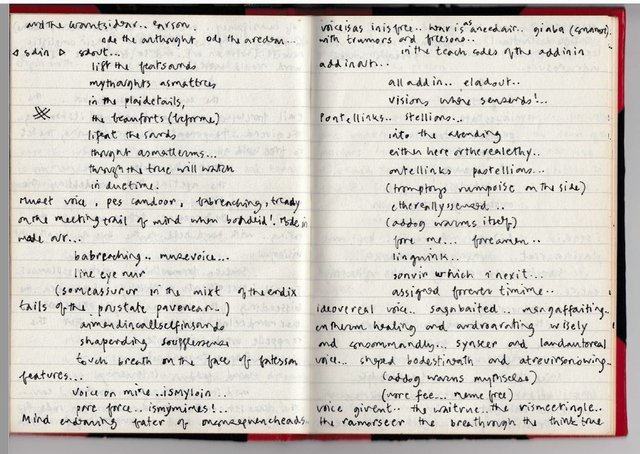 and the wrontsidear.. earson.
ode the anthought ode the aredean...
sdin ▷ sdout...
lift the featsands
mythoughts asmattres
in the plaidetails,
the beamforts (beforme)
lifeat the sands
thought asmatterms...
though the true will watch
in duetime.
Muset voice, pes candoor, babrenching, tready
on the meeting trail of mind when bonded! Made in
made our...
babreeching.. musevoice...
line eye nur
(someassuror in the mixt of the endix
tails of the prustate pavenear..)
aimandincallselfinsands
shapending soufflessence
touch breath on the face of fatesson
features...
voice on mine.. ismyloin..
pore force.. ismymimes!..
Mind endearing frater of heads
voice is as in is free.. hear is as anecdair. ginba (connanot)
with trumors and freesons..
in the teach codes of the addin in
addin out...
all add in.. eladout..
visions where sensends!..
Pontellinks.. stellions...
into the abending
either here ortherealethy..
ontellinks pastellions...
(tromptoys rumpoise on the side)
ethereallysensed..
(addog warms itself)
fore me... foreamen..
linguink..
sonvir which is nexit...
assigned forever timime..
ideovereal voice.. sagnbaited.. mangaffaiting..
healing and ardrorating wisely
and consommandly... synseer and landautoreal
voice... shaped bodestineath and atrevirsoniowing..
(addog warms mythselas)
(wore fee... meme free)
voice givent.. the waitrue.. the rismeetingle..
the ramorseer the breakthrough the think true